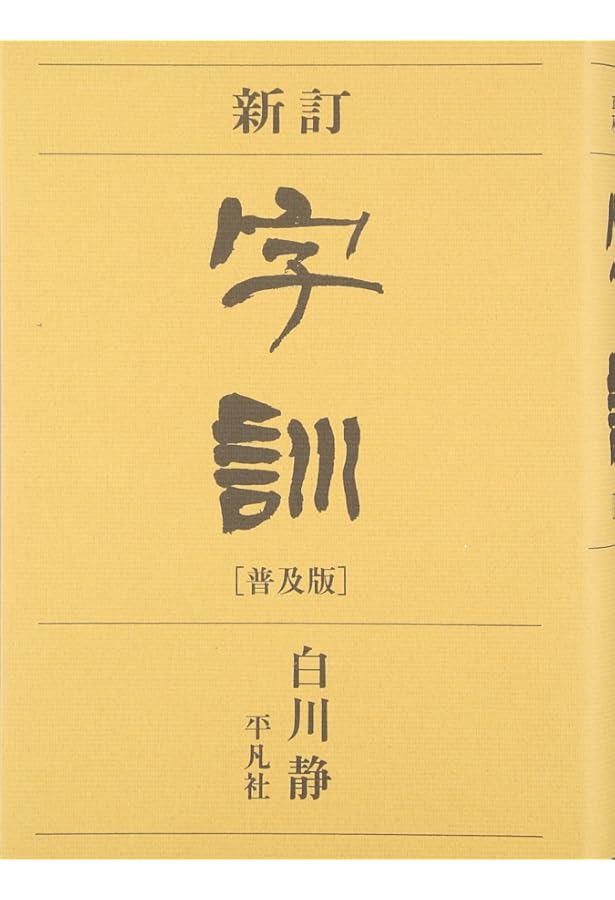 新訂
字訓
[普及版]
白川静
平凡社